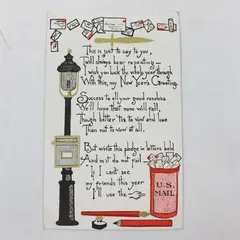 This is just to say to you,
'Twill always bear repeating—
I wish you luck the whole year through
With this, my New Year's Greeting.
Success to all your good resolves
We'll hope that none will fall,
Though better 'tis to vow and lose
Than not to vow at all.
But write this pledge in letters bold
And so it do not fail—
"If I can't see
my friends this year
I'll use the
U.S.
MAIL